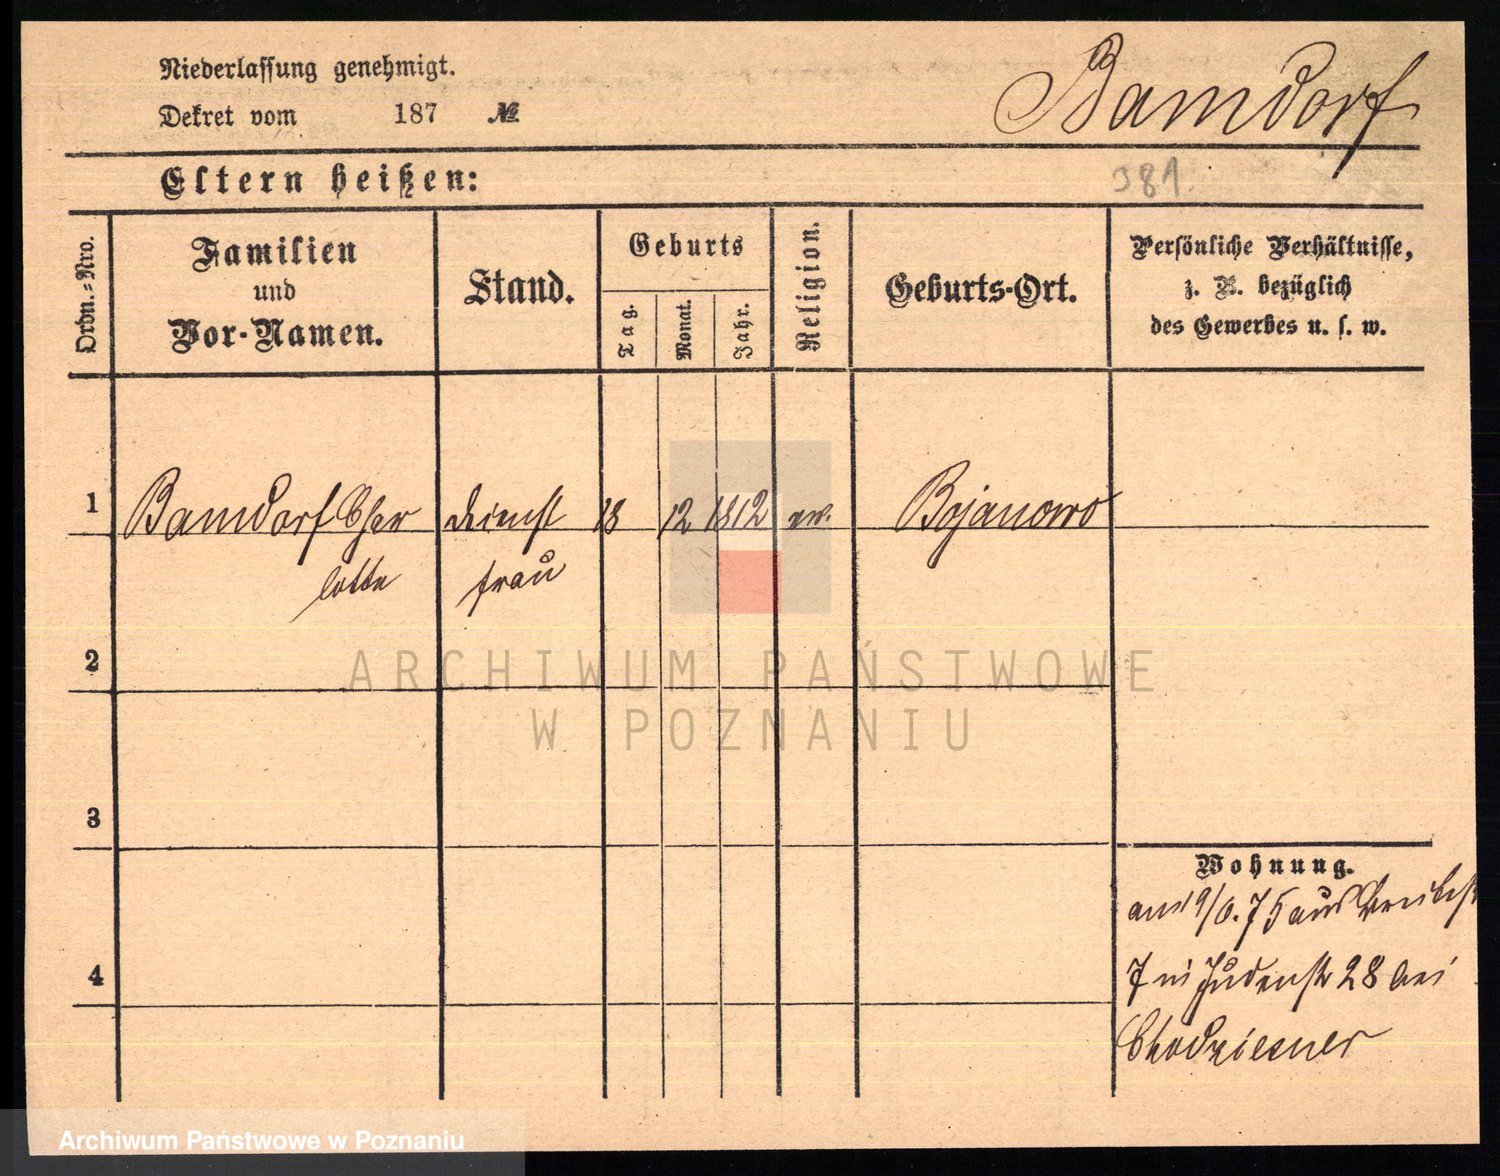 Niederlassung genehmigt.
Bamdorf
Dekret vom 187 №
Eltern heißen:
381.
Ordn.=Nro.
Familien
und
Vor-Namen.
Stand.
Geburts
Tag.
Monat.
Jahr.
Religion.
Geburts-Ort.
Persönliche Verhältnisse,
z. B. bezüglich
des Gewerbes u. s. w.
1 Bamdorf Char dienst 18 12 1812 ev. Bojanowo
lotte frau
2
ARCHIWUM PAŃSTWOWE
W POZNANIU
3
Wohnung.
75 aus
4
7 in Judenstr 28 bei
Chodziesner
Archiwum Państwowe w Poznaniu